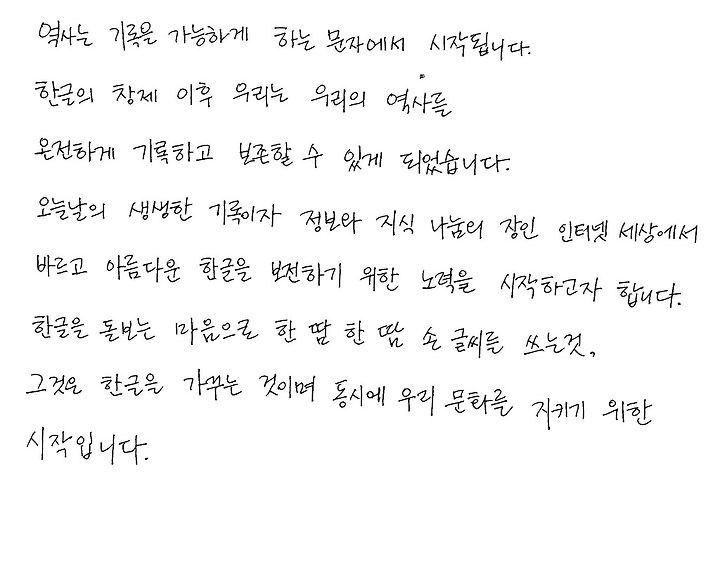 역사는 기록을 가능하게 하는 문자에서 시작됩니다.
한글의 창제 이후 우리는 우리의 역사를
온전하게 기록하고 보존할 수 있게 되었습니다.
오늘날의 생생한 기록이자 정보와 지식 나눔의 장인 인터넷 세상에서
바르고 아름다운 한글을 보전하기 위한 노력을 시작하고자 합니다.
한글을 돌보는 마음으로 한 땀 한 땀 손 글씨를 쓰는것,
그것은 한글을 가꾸는 것이며 동시에 우리 문화를 지키기 위한
시작입니다.